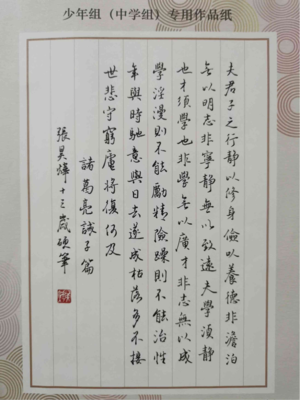 少年组（中学组）专用作品纸
夫君子之行靜以修身儉以養德非澹泊
無以明志非寧靜無以致遠夫學須靜
也才須學也非學無以廣才非志無以成
學淫漫則不能勵精險躁則不能治性
年與時馳意與日去遂成枯落多不接
世悲守窮廬將復何及
諸葛亮誡子篇
張昊燁十三歲硬筆